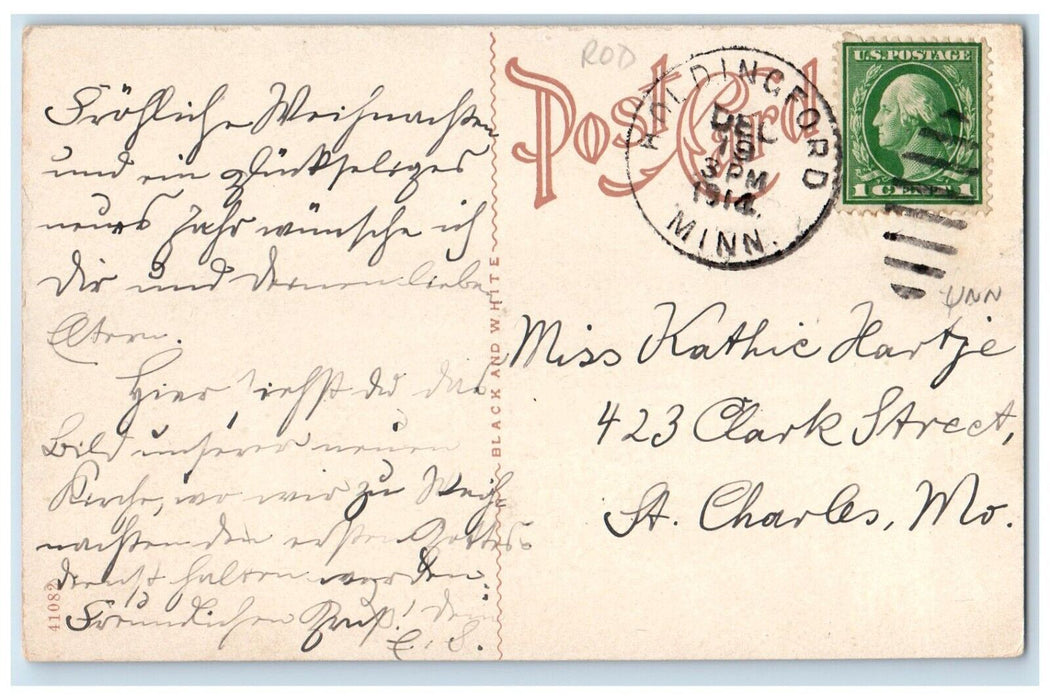 Fröhliche Weihnachten
und ein glückseliges
neues Jahr wünsche ich
Dir und Deinen lieben
Eltern.
Hier siehst du das
Bild unserer neuen
Kirche, wo wir zu Weih-
nachten den ersten Gottes-
dienst halten werden.
Freundlichen Gruß! Dein
E. S.
41082
BLACK AND WHITE
ROD
Post Card
HOLDINGFORD
DEC
19
3 PM
1914
MINN.
U.S. POSTAGE
1 CENT 1
Miss Kathie Hartje
423 Clark Street,
St. Charles, Mo.